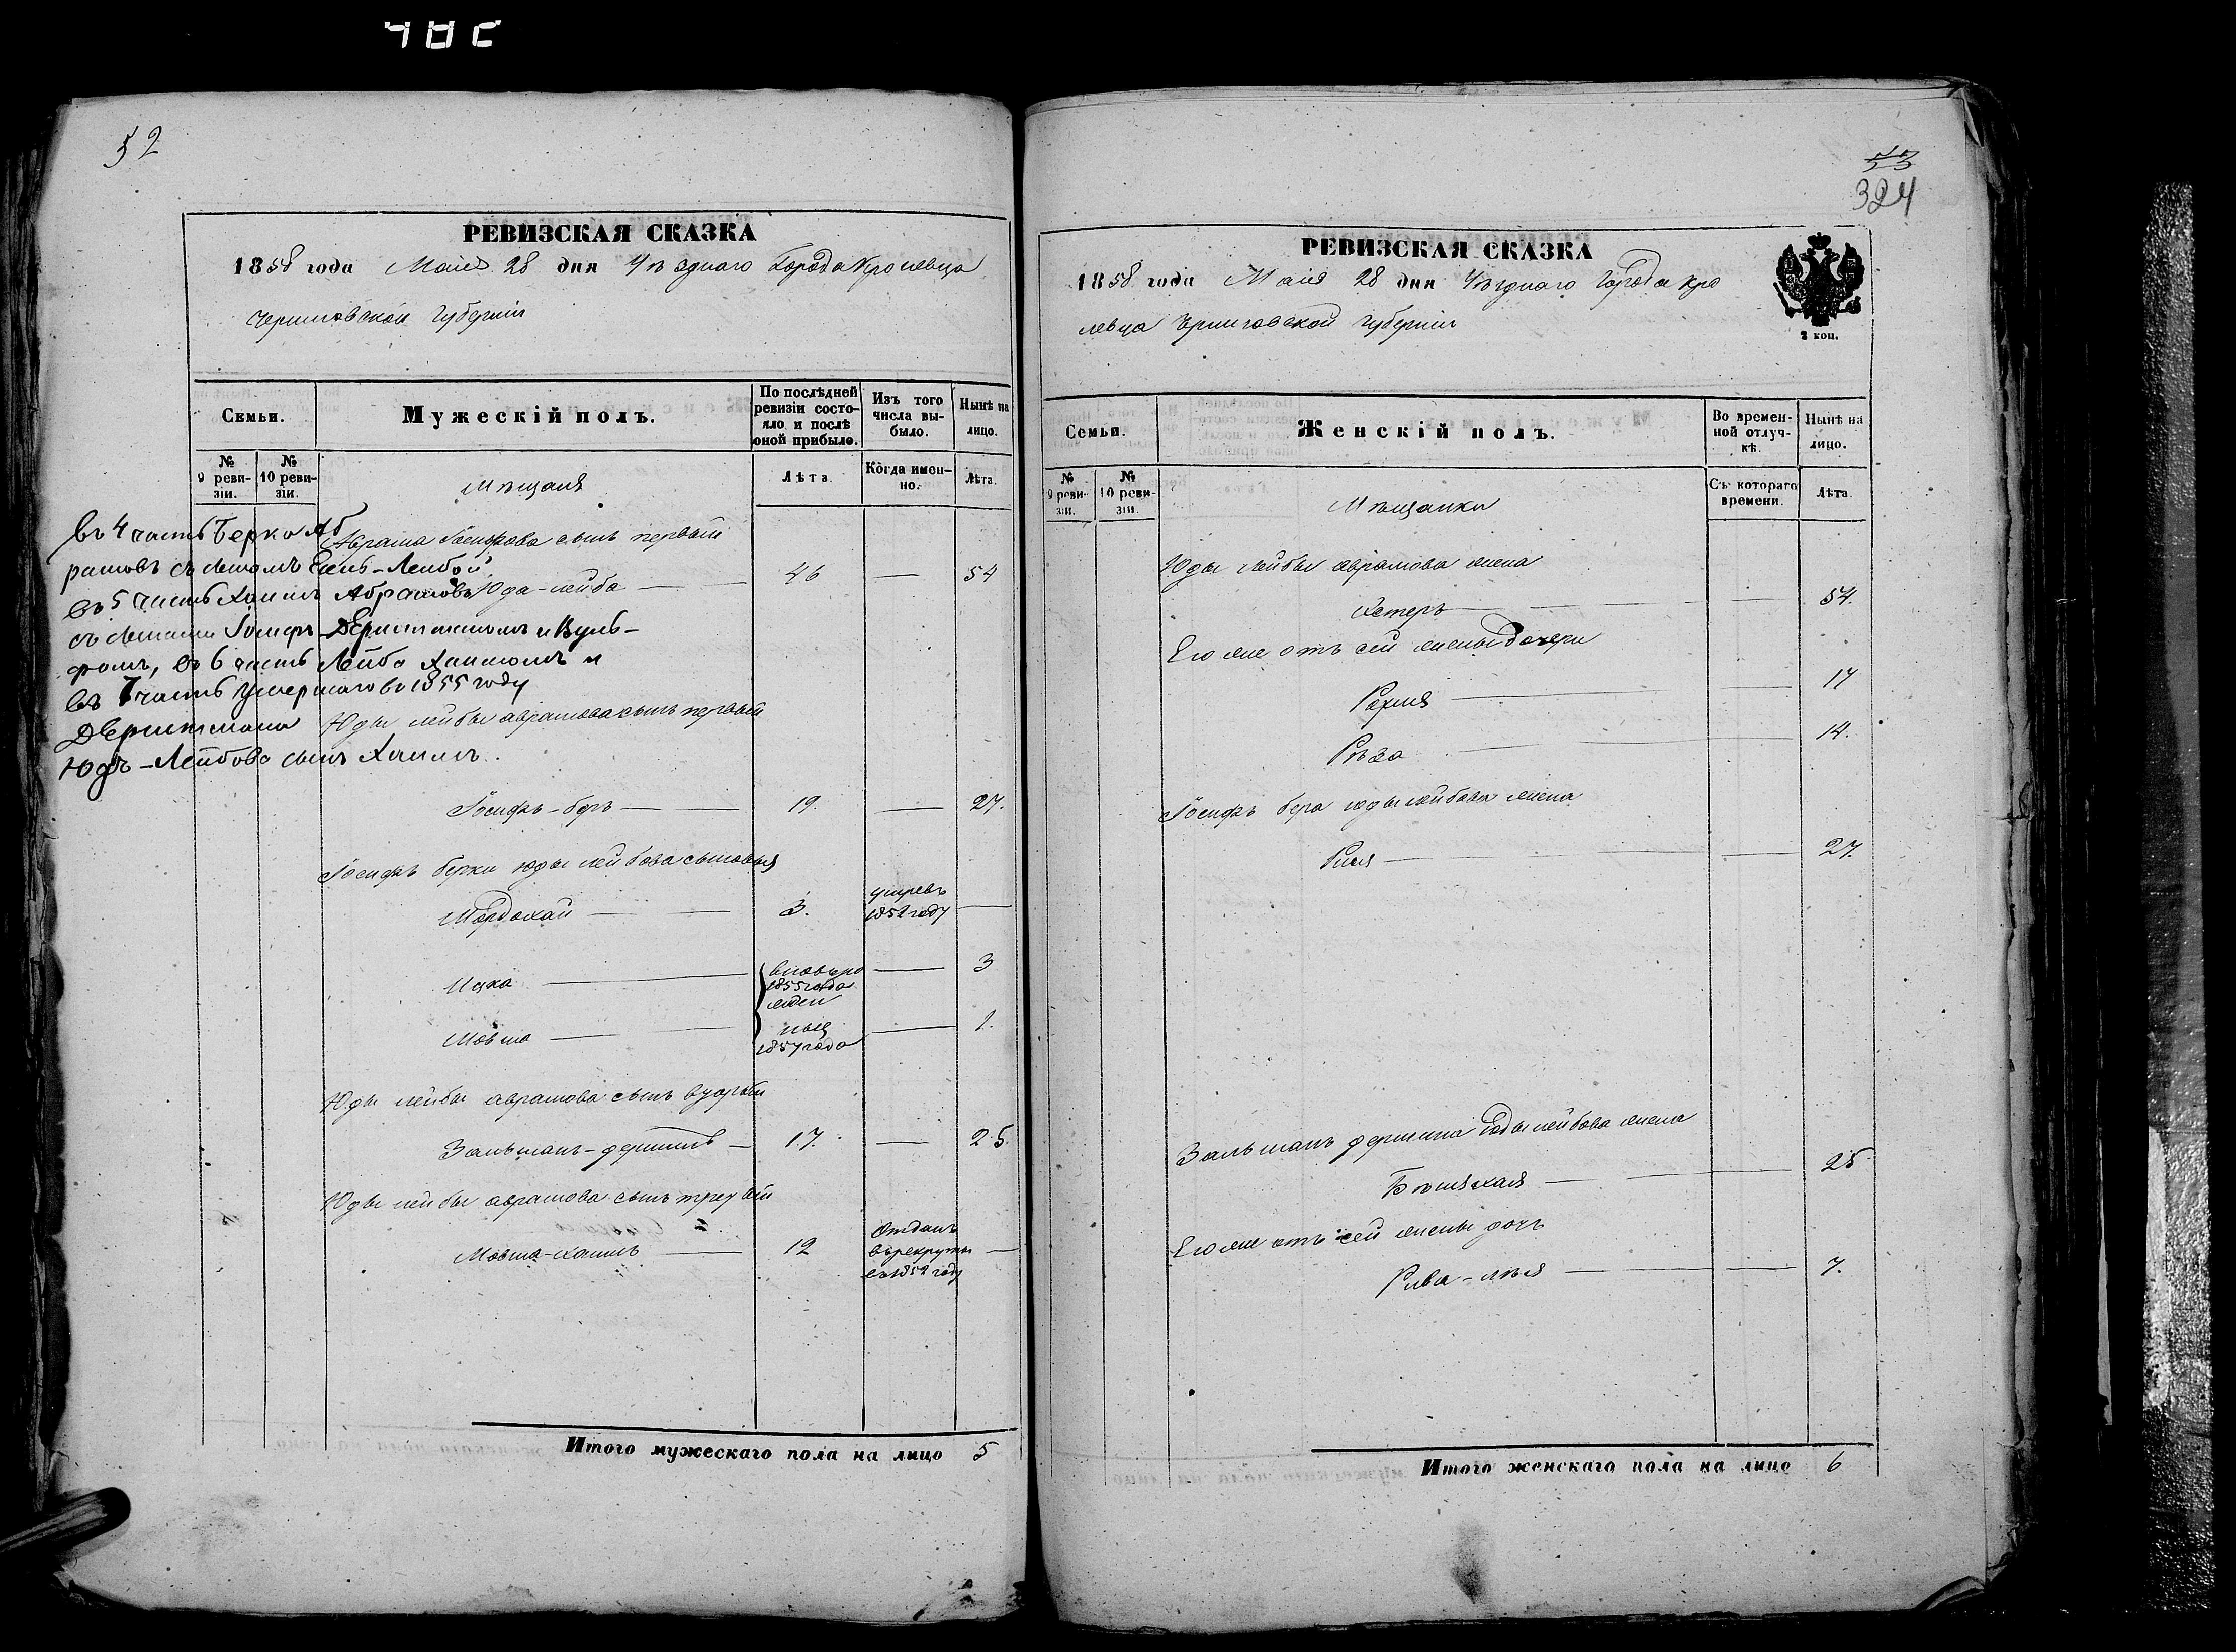 52
РЕВИЗСКАЯ СКАЗКА
1858 года Маія 28 дня Уѣзднаго Города Кролевца
Черниговской Губерніи
Семьи.
Мужескій полъ.
По послѣдней ревизіи состояло и послѣ оной прибыло.
Изъ того числа выбыло.
Нынѣ на лицо.
№ 9 ревизіи.
№ 10 ревизіи.
Мѣщаня
Лѣта.
Когда именно.
Лѣта.
въ 4 часть Берко Аб
рамовъ съ
въ 5 часть Хаимъ Абрамовъ
съ Іосифъ
фомъ, въ 6 часть Лейба Хаимомъ и
въ 7 часть умершаго въ 1855 году
Юдъ-Лейбова сынъ Хаимъ.
Аврама Іосифова сынъ первый
Юда-лейба 46 — 54
Юды лейбы аврамова сынъ первый
Іосифъ-беръ 19. — 27.
Іосифъ берки юды лейбова сыновья
Мордохай 3. умре въ 1852 году —
Ицка вновь ро 1855 года — 3
жден
Мовша ныя 1857 года — 1.
Юды лейбы аврамова сынъ вторый
Зальманъ- 17. — 25.
Юды лейбы аврамова сынъ третій
Мовша-хаимъ 12 Отданъ въ рекруты въ 1852 году —
Итого мужескаго пола на лицо 5
53
324
РЕВИЗСКАЯ СКАЗКА
1858 года Маія 28 дня Уѣзднаго Города Кро
левца Черниговской Губерніи
2 коп.
Семьи.
Женскій полъ.
Во временной отлучкѣ.
Нынѣ на лицо.
№ 9 ревизіи.
№ 10 ревизіи.
Мѣщанки
Съ котораго времени.
Лѣта.
Юды лейбы аврамова жена
Естеръ — 54.
Его же отъ сей жены дочери
— 17
Рѣза — 14.
Іосифъ бера юды лейбова жена
— 27.
Зальманъ юды лейбова жена
— 25
Его же отъ сей жены дочь
Рива- — 7.
Итого женскаго пола на лицо 6